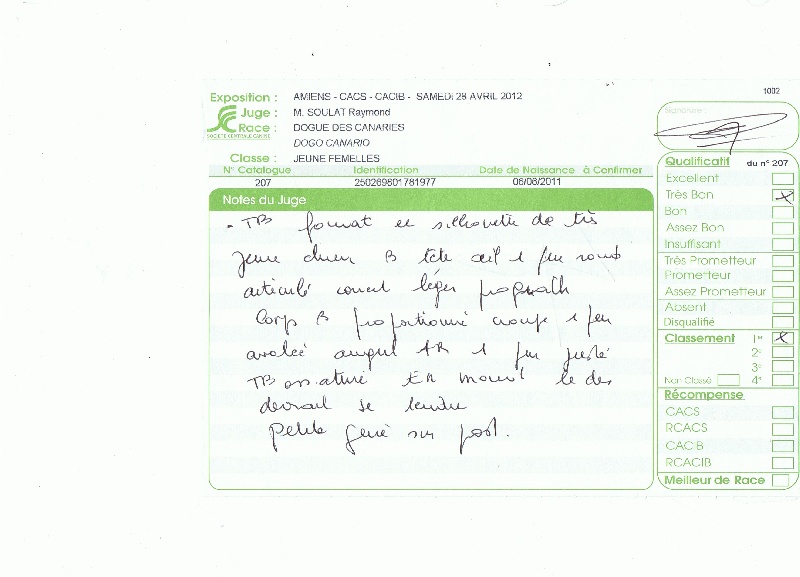 1002
Exposition : AMIENS - CACS - CACIB - SAMEDI 28 AVRIL 2012
Juge : M. SOULAT Raymond
Race : DOGUE DES CANARIES
SOCIETE CENTRALE CANINE
DOGO CANARIO
Classe : JEUNE FEMELLES
N° Catalogue Identification Date de Naissance à Confirmer
207 250269801781977 06/06/2011
Notes du Juge
- TB format et silhouette de très
jeune chien B tete œil 1 peu rond
articulé correct léger prognath
Corps B proportionné croupe 1 peu
avalée angul AR 1 peu juste
TB ossature En mouvt le dos
devrait se tendre
Petite gene sur post.
Signature :
Qualificatif du n° 207
Excellent
Très Bon X
Bon
Assez Bon
Insuffisant
Très Prometteur
Prometteur
Assez Prometteur
Absent
Disqualifié
Classement 1er X
2e
3e
Non Classé 4e
Récompense
CACS
RCACS
CACIB
RCACIB
Meilleur de Race